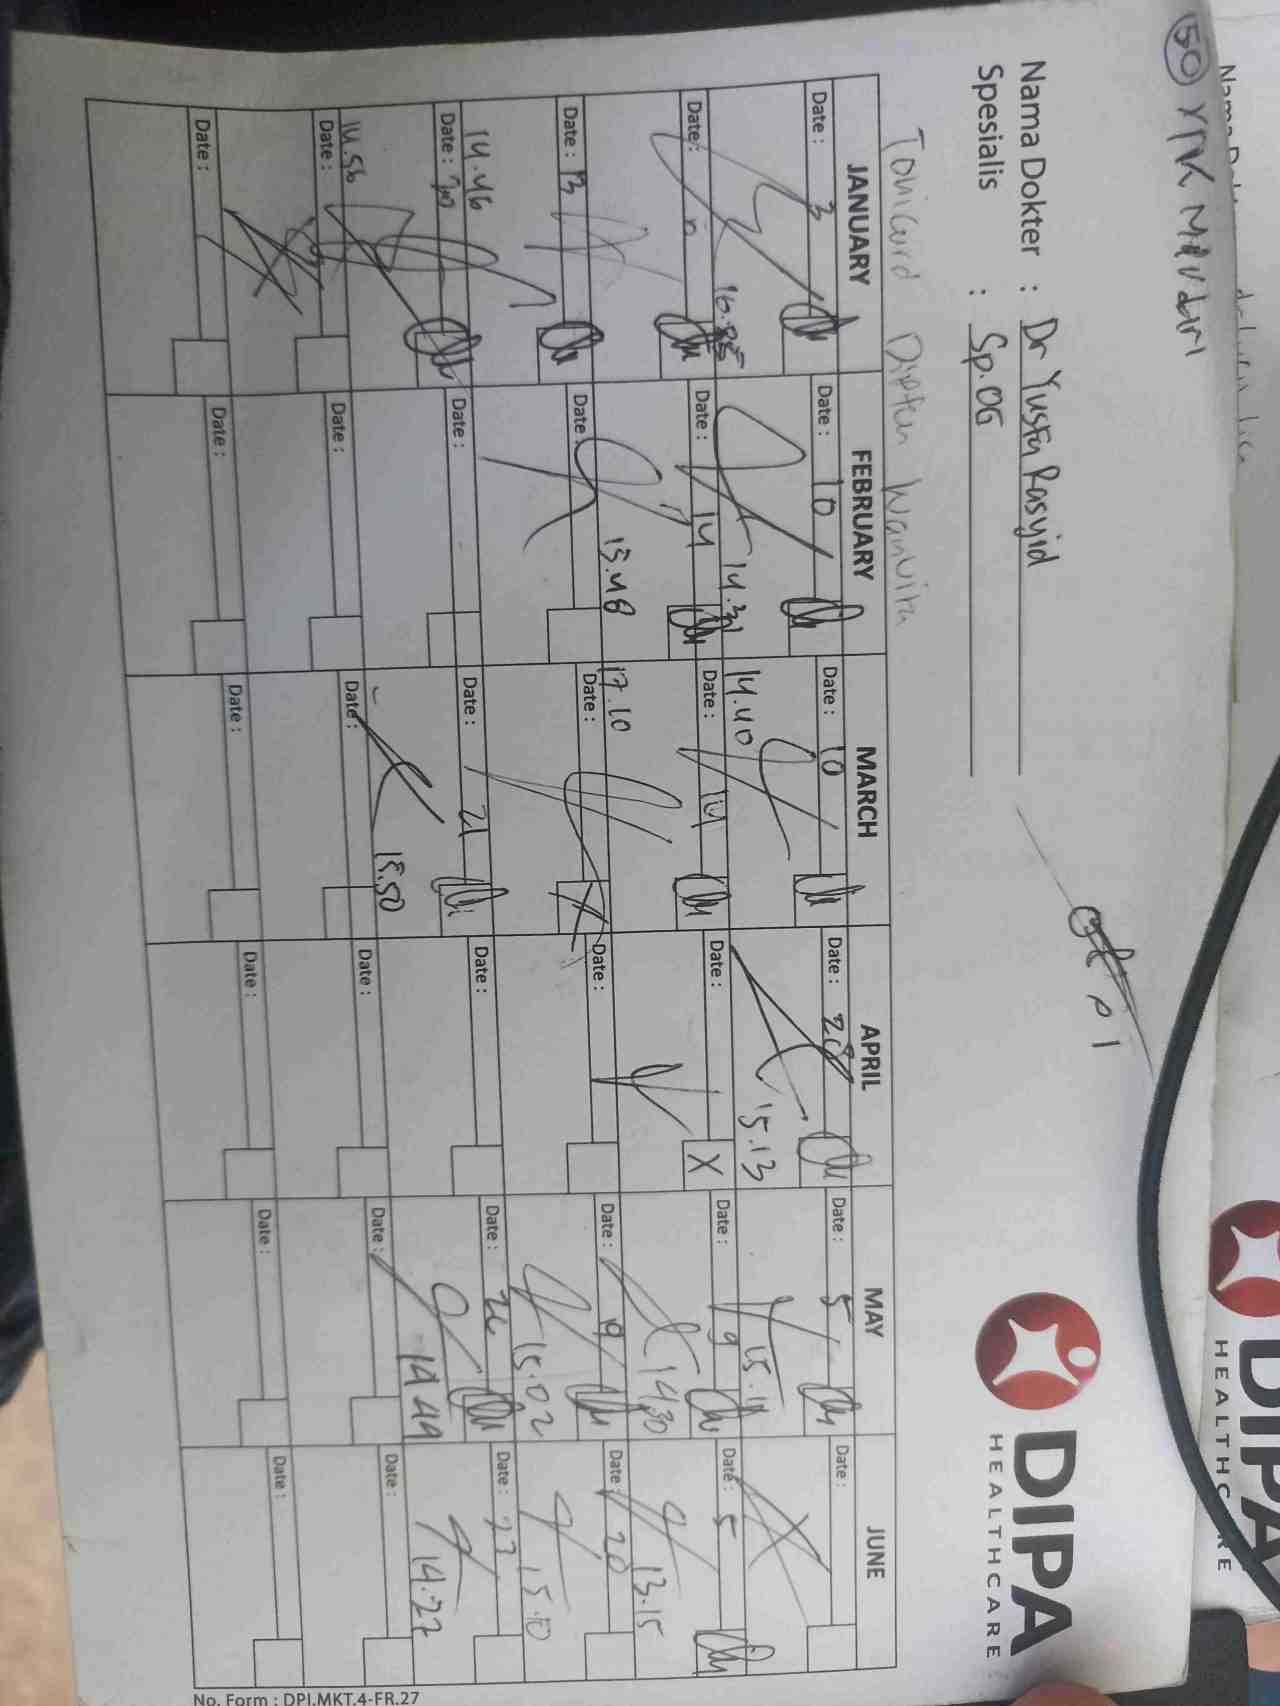 50 YPK MANDIRI
DIPA
HEALTHCARE
Nama Dokter : Dr Yusfa Rasyid
Spesialis : Sp.OG
JANUARY FEBRUARY MARCH APRIL MAY JUNE
Date : 3 Date : 10 Date : 10 Date : 28 Date : 5 Date :
14.40 15.13
Date : Date : 14 Date : 14 Date : Date : 9 Date : 5
15.48 17.10 14.30 13.15
Date : 13 Date : Date : Date : Date : 19 Date : 20
14.46 15.02 15.10
Date : Date : Date : 21 Date : Date : 26 Date : 23
14.56 15.50 14.49 14.27
Date : Date : Date : Date : Date : Date :
Date : Date : Date : Date : Date : Date :
No. Form : DPI.MKT.4-FR.27
DIPA
HEALTHCARE